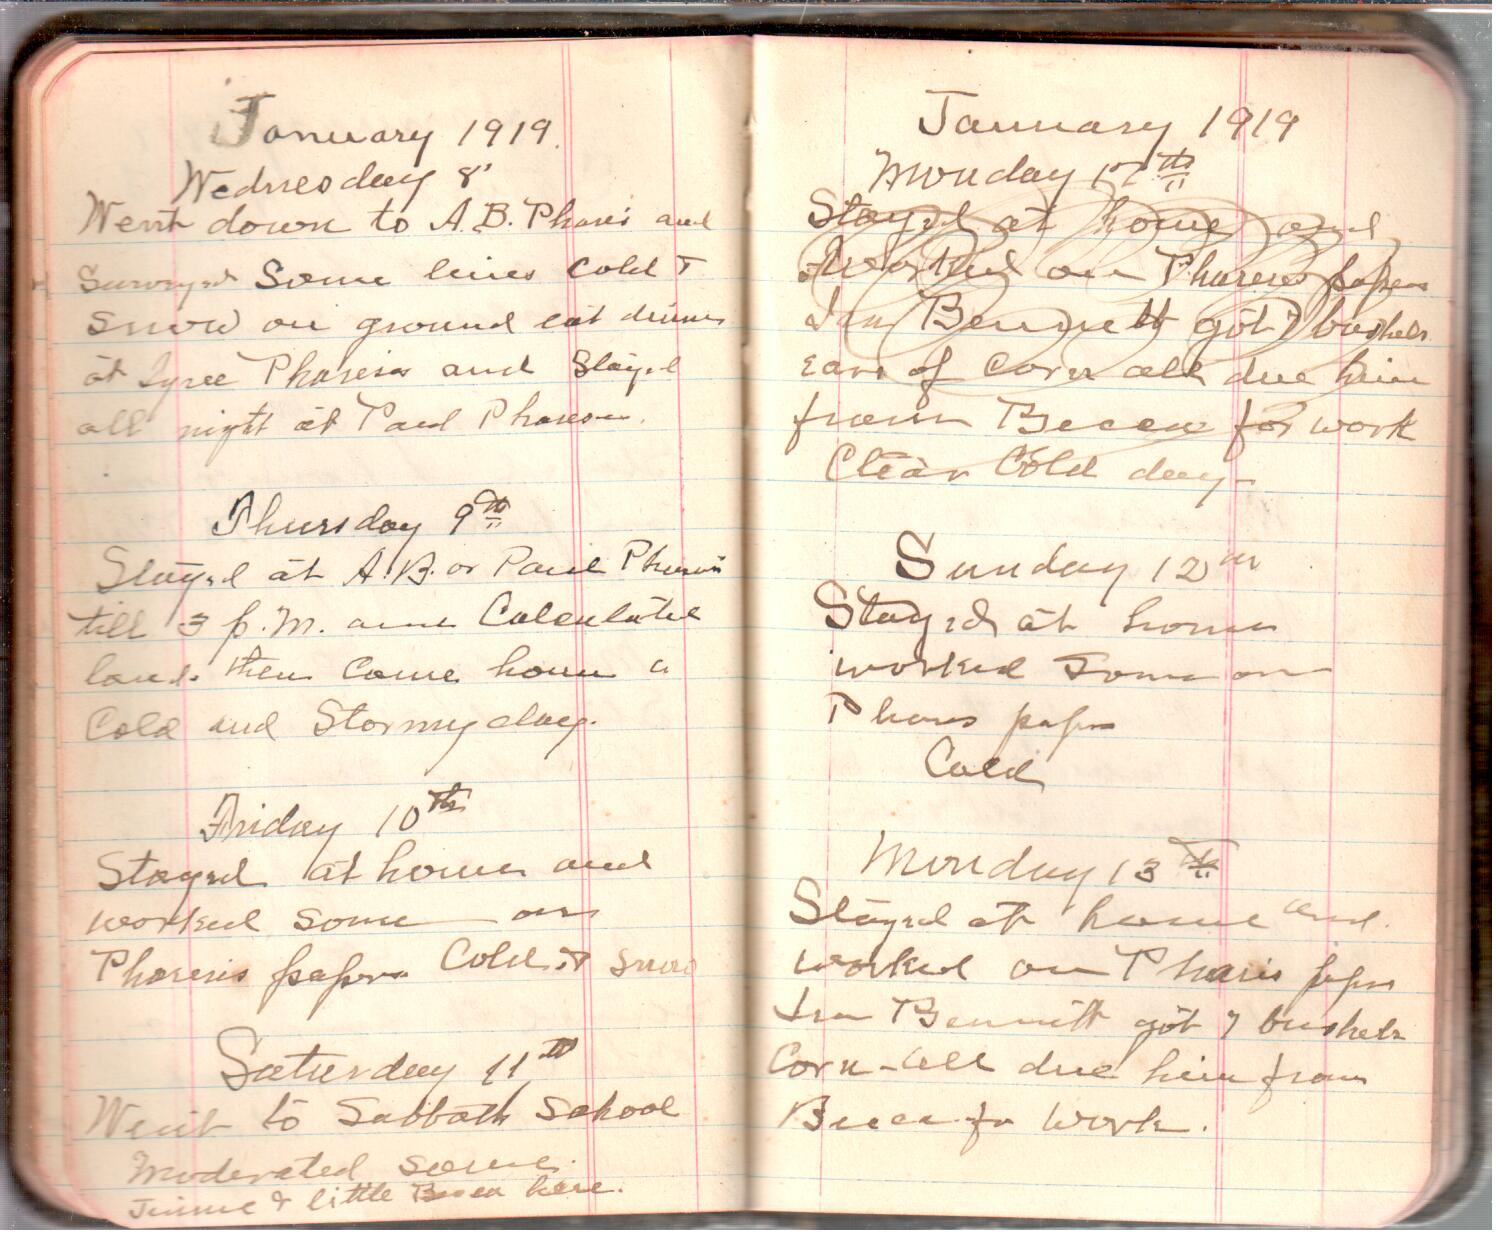 January 1919.
Wednesday 8'
Went down to A.B. Phares and
Surveyed Some lines Cold &
Snow on ground eat dinner
at Tyree Phareses and Stayed
all night at Paul Phareses.
Thursday 9th
Stayed at A.B. or Paul Phares
till 3 p.M. and Calculated
land. then Come home a
Cold and Stormy day.
Friday 10th
Stayed at home and
worked some on
Phareses papers Cold & Snow
Saturday 11th
Went to Sabbath School
Moderated some.
Jinnie & little Becca here.
January 1919
Monday th
Stayed at home and
worked on Phareses papers
Ira Bennett got 7 bushels
ears of Corn all due him
from Becca for work
Clear Cold day-
Sunday 12th
Stayed at home
worked Some on
Phares papers
Cold
Monday 13th
Stayed at home and.
worked on Pharis papers
Ira Bennett got 7 bushels
Corn-all due him from
Becca for work.